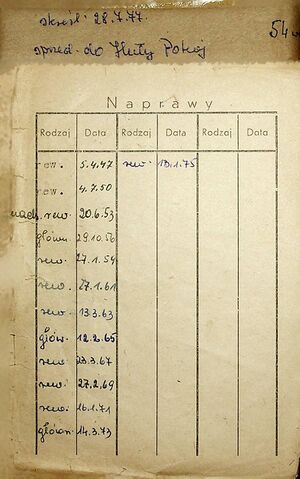 skreśl. 28.7.77.
54
sprzed. do Huty Pokój
Naprawy
Rodzaj Data Rodzaj Data Rodzaj Data
rew. 5.4.47 rew. 13.1.75
rew. 4.7.50
nadz. rew. 20.6.53
główn. 29.10.56
rew. 27.1.59
rew. 27.1.61
rew. 13.3.63
głów. 12.2.65
rew. 23.3.67
rew. 27.2.69
rew. 16.1.71
główn. 14.3.73